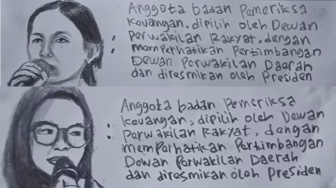 Anggota badan Pemeriksa
Keuangan, dipilih oleh Dewan
: Perwakilan Rakyat, dengan
memperhatikan Pertimbangan
Dewan Perwakilan Daerah
dan diresmikan oleh Presiden
Anggota badan Pemeriksa
Keuangan, dipilih oleh Dewan
: Perwakilan Rakyat, dengan
memperhatikan Pertimbangan
Dewan Perwakilan Daerah
dan diresmikan oleh Presiden